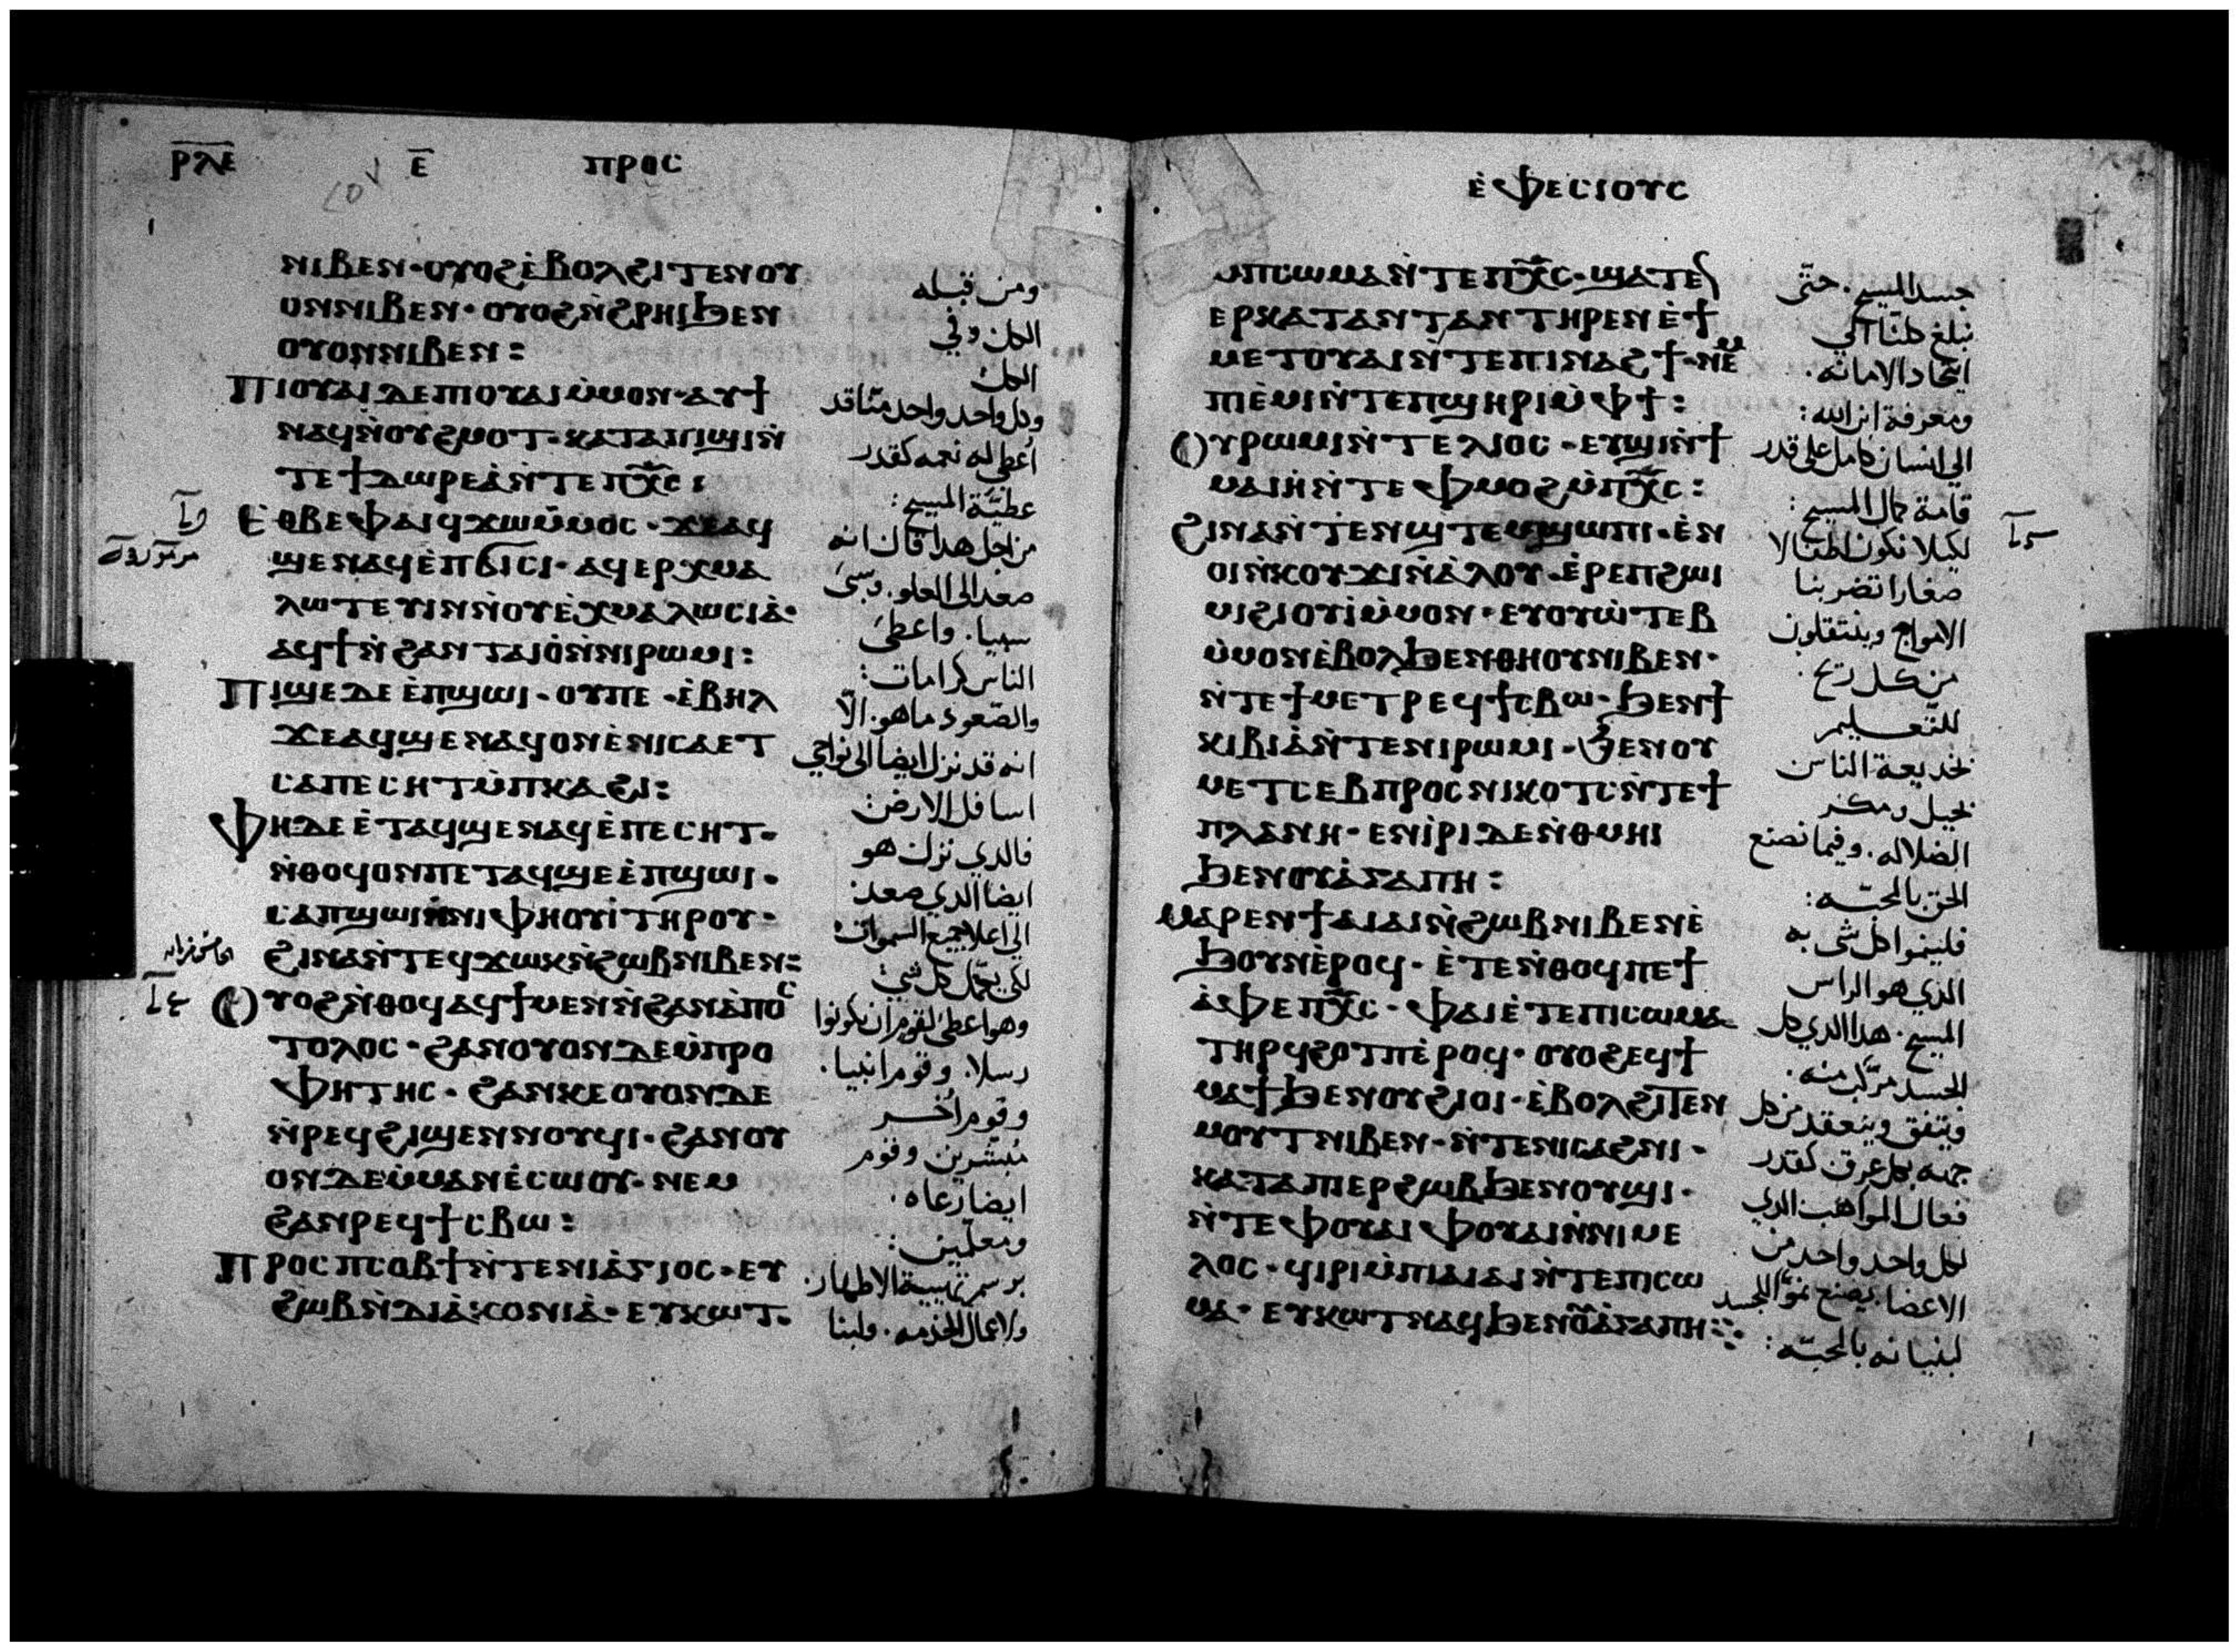 ⲣⲗⲉ ⲉ ⲡⲣⲟⲥ
ⲛⲓⲃⲉⲛ· ⲟⲩⲟϩ ⲉ̀ⲃⲟⲗϩⲓⲧⲉⲛⲟⲩ
ⲟⲛⲛⲓⲃⲉⲛ· ⲟⲩⲟϩ ⲛ̀ϩⲣⲏⲓϧⲉⲛ
ⲟⲩⲟⲛⲛⲓⲃⲉⲛ:
ⲡⲓⲟⲩⲁⲓ ⲇⲉ ⲡⲓⲟⲩⲁⲓ ⲙ̀ⲙⲟⲛ· ⲁⲩϯ
ⲛⲁϥⲛ̀ⲟⲩϩⲙⲟⲧ· ⲕⲁⲧⲁⲡⲓϣⲓⲛ̀
ⲧⲉϯⲇⲱⲣⲉⲁ̀ⲛ̀ⲧⲉⲡⲭ̅ⲥ:
ⲉⲑⲃⲉⲫⲁⲓ ϥϫⲱⲙ̀ⲙⲟⲥ· ϫⲉⲁϥ
ϣⲉⲛⲁϥⲉ̀ⲡϭⲓⲥⲓ· ⲁϥⲉⲣⲭⲙⲁ
ⲗⲱⲧⲉⲩⲓⲛⲛ̀ⲟⲩⲉ̀ⲭⲙⲁⲗⲱⲥⲓⲁ̀·
ⲁϥϯⲛ̀ϩⲁⲛⲧⲁⲓⲟ̀ⲛ̀ⲛⲓⲣⲱⲙⲓ:
ⲡⲓϣⲉⲇⲉⲉ̀ⲡϣⲱⲓ· ⲟⲩⲡⲉ· ⲉ̀ⲃⲏⲗ
ϫⲉⲁϥϣⲉⲛⲁϥⲟⲛⲉ̀ⲛⲓⲥⲁⲉⲧ
ⲥⲁⲡⲉⲥⲏⲧⲙ̀ⲡⲕⲁϩⲓ:
ⲫⲏⲇⲉⲉ̀ⲧⲁϥϣⲉⲛⲁϥⲉ̀ⲡⲉⲥⲏⲧ·
ⲛ̀ⲑⲟϥⲟⲛⲡⲉⲧⲁϥϣⲉⲉ̀ⲡϣⲱⲓ·
ⲥⲁⲡϣⲱⲓⲛ̀ⲛⲓⲫⲏⲟⲩⲓ̀ⲧⲏⲣⲟⲩ·
ϩⲓⲛⲁⲛ̀ⲧⲉϥϫⲱⲕⲛ̀ϩⲱⲃⲛⲓⲃⲉⲛ:
ⲟⲩⲟϩⲛ̀ⲑⲟϥⲁϥϯⲙⲉⲛⲛ̀ϩⲁⲛⲁ̀ⲡⲟⲥ
ⲧⲟⲗⲟⲥ· ϩⲁⲛⲟⲩⲟⲛⲇⲉⲙ̀ⲡⲣⲟ
ⲫⲏⲧⲏⲥ· ϩⲁⲛⲕⲉⲟⲩⲟⲛⲇⲉ
ⲛ̀ⲣⲉϥϩⲓϣⲉⲛⲛⲟⲩϥⲓ· ϩⲁⲛⲟⲩ
ⲟⲛⲇⲉⲙ̀ⲙⲁⲛⲉ̀ⲥⲱⲟⲩ· ⲛⲉⲙ
ϩⲁⲛⲣⲉϥϯⲥⲃⲱ:
ⲡⲣⲟⲥⲡⲥⲟⲃϯⲛ̀ⲧⲉⲛⲓⲁ̀ⲅⲓⲟⲥ· ⲉⲩ
ϩⲱⲃⲛ̀ⲇⲓⲁ̀ⲕⲟⲛⲓⲁ̀· ⲉⲩⲕⲱⲧ·
ومن قبله
الكل وفي
الكل
وكل واحد واحد منا قد
أعطي له نعمه كقدر
عطيّة المسيح:
من اجل هدا قال انه
صعد الى العلو. وسبى
سبيا. واعطى
الناس كرامات:
والصعود ما هو. الّا
انه قد نزل ايضا الى نواحي
اسافل الارض:
فالدي نزل هو
ايضا الدي صعد
الي اعلا جميع السموات
لكي يكمّل كل شي
وهو اعطى لقوم ان يكونوا
رسلا. وقوم انبيا.
وقوم أخر
مُبشّرين وقوم
ايضا رعاه.
ومعلمين:
برسم تهيية الاطهار.
ولاعمال الخدمه. ولبنا
ⲉ̀ⲫⲉⲥⲓⲟⲩⲥ
ⲙⲡⲥⲱⲙⲁⲛ̀ⲧⲉⲡⲭ̅ⲥ· ϣⲁⲧⲉⲛ
ⲉⲣⲕⲁⲧⲁⲛⲧⲁⲛⲧⲏⲣⲉⲛⲉ̀ϯ
ⲙⲉⲧⲟⲩⲁⲓⲛ̀ⲧⲉⲡⲓⲛⲁϩϯ· ⲛⲉⲙ
ⲡⲓⲉ̀ⲙⲓⲛ̀ⲧⲉⲡϣⲏⲣⲓⲙ̀ⲫϯ:
ⲟⲩⲣⲱⲙⲓⲛ̀ⲧⲉⲗⲓⲟⲥ· ⲉⲩϣⲓⲛ̀ϯ
ⲙⲁⲓⲏⲛ̀ⲧⲉⲫⲙⲟϩⲙ̀ⲡⲭ̅ⲥ:
ϩⲓⲛⲁⲛ̀ⲧⲉⲛϣⲧⲉⲙϣⲱⲡⲓ· ⲉⲛ
ⲟⲓⲛ̀ⲕⲟⲩϫⲓⲛ̀ⲁ̀ⲗⲟⲩ· ⲉ̀ⲣⲉⲡϩⲱⲓ
ⲙⲓϩⲓⲟⲩⲓ̀ⲙ̀ⲙⲟⲛ· ⲉⲩⲟⲩⲱ̀ⲧⲉⲃ
ⲙ̀ⲙⲟⲛⲉ̀ⲃⲟⲗϧⲉⲛⲑⲏⲟⲩⲛⲓⲃⲉⲛ·
ⲛ̀ⲧⲉϯⲙⲉⲧⲣⲉϥϯⲥⲃⲱ· ϧⲉⲛϯ
ⲕⲓⲃⲓⲁ̀ⲛ̀ⲧⲉⲛⲓⲣⲱⲙⲓ· ϧⲉⲛⲟⲩ
ⲙⲉⲧⲥⲉⲃⲡⲣⲟⲥⲛⲓⲕⲟⲧⲥⲛ̀ⲧⲉϯ
ⲡⲗⲁⲛⲏ· ⲉⲛⲓ̀ⲣⲓⲇⲉⲛ̀ⲑⲙⲏⲓ
ϧⲉⲛⲟⲩⲁ̀ⲅⲁⲡⲏ:
ⲙⲁⲣⲉⲛϯⲁⲓⲁⲓⲛ̀ϩⲱⲃⲛⲓⲃⲉⲛⲉ̀
ϧⲟⲩⲛⲉ̀ⲣⲟϥ· ⲉ̀ⲧⲉⲛ̀ⲑⲟϥⲡⲉϯ
ⲁ̀ⲫⲉⲡⲭ̅ⲥ· ⲫⲁⲓⲉ̀ⲧⲉⲡⲓⲥⲱⲙⲁ
ⲧⲏⲣϥϩⲟⲧⲡⲉ̀ⲣⲟϥ· ⲟⲩⲟϩⲉϥϯ
ⲙⲁϯϧⲉⲛⲟⲩϩⲓⲟⲓ· ⲉ̀ⲃⲟⲗϩⲓⲧⲉⲛ
ⲙⲟⲩⲧⲛⲓⲃⲉⲛ· ⲛ̀ⲧⲉⲛⲓⲥⲁϩⲛⲓ·
ⲕⲁⲧⲁⲡⲓⲉⲣϩⲱⲃϧⲉⲛⲟⲩϣⲓ·
ⲛ̀ⲧⲉⲫⲟⲩⲁⲓⲫⲟⲩⲁⲓⲛ̀ⲛⲓⲙⲉ
ⲗⲟⲥ· ϥⲓⲣⲓⲙ̀ⲡⲓⲁⲓⲁⲓⲛ̀ⲧⲉⲡⲓⲥⲱ
ⲙⲁ· ⲉⲩⲕⲱⲧⲛⲁϥϧⲉⲛⲟⲩⲁ̀ⲅⲁⲡⲏ:
جسد المسيح. حتّى
نبلغ كلنا الي
اتحاد الامانه.
ومعرفة ابن الله:
الي انسان كامل على قدر
قامة كمال المسيح:
لكيلا نكون اطفالا
صغارا تضربنا
الامواج وينتقلون
من كل ريح.
للتعليم
بخديعة الناس
بحيل ومكر
الضلاله. وفيما نصنع
الحق بالمحبّه:
فلينموا كل شي به
الذي هو الراس
المسيح. هدا الدي كل
الجسد مركّب منه.
ويتفق وينعقد من كل
جهه بكل عرق كقدر
فعال المواهب الدي
لكل واحد واحد من
الاعضا. يصنع نموّ الجسد
لبنيانه بالمحبّه: